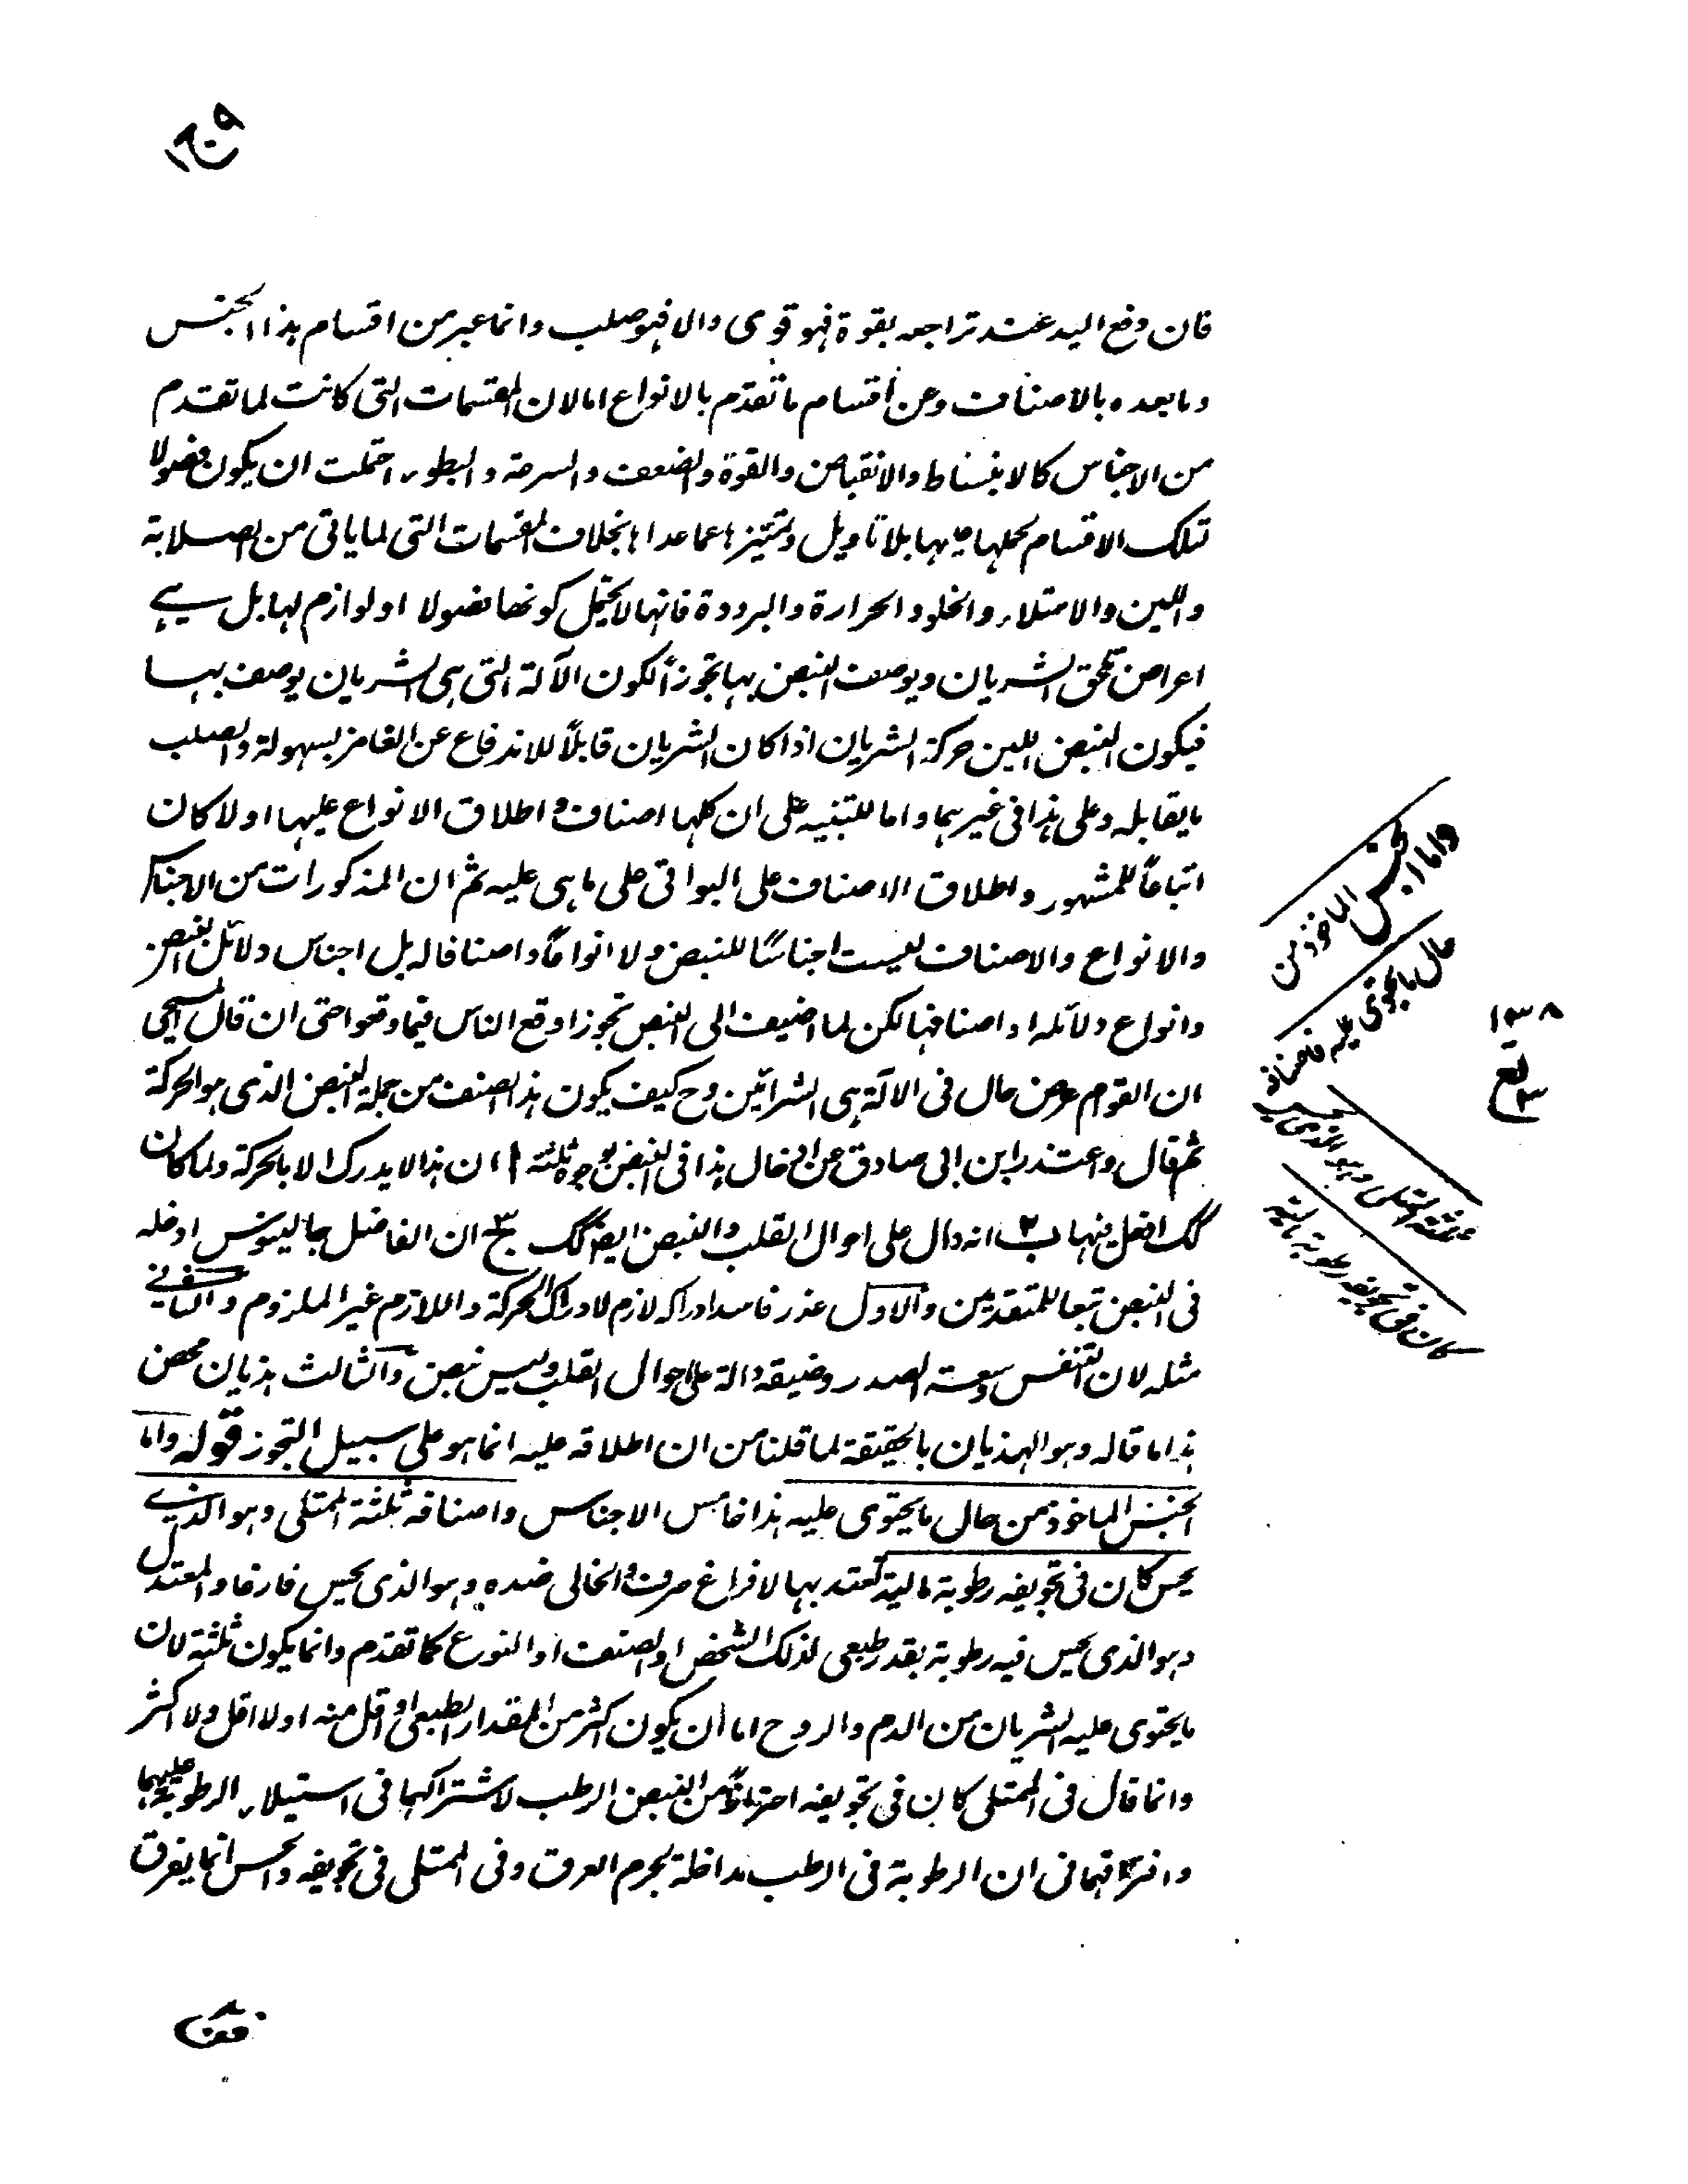 فان دفع اليد عند تراجعه بقوة فهو قوى والا فهو صلب وانما عبر من اقسام هذا الجنس
وما بعده بالاصناف وعن أقسام ما تقدم بالانواع اما لان المقسمات التى كانت لما تقدم
من الاجناس كالانبساط والانقباض والقوة والضعف والسرعة والبطوء احتملت ان يكون فصولا
تلك الاقسام لحملها عليها بلا تاويل وتميزها عما عداها بخلاف المقسمات التى لما ياتى من الصلابة
واللين والامتلاء والخلو والحرارة والبرودة فانها لا يحتمل كونها فصولا او لوازم لها بل هى
اعراض تلحق الشريان ويوصف النبض بها تجوزاً لكون الآلة التى هى الشريان يوصف بها
فيكون النبض اللين حركة الشريان اذا كان الشريان قابلاً للاندفاع عن الغامز بسهولة والصلب
ما يقابله وعلى هذا فى غيرهما واما للتنبيه على ان كلها اصناف واطلاق الانواع عليها اولا كان
اتباعاً للمشهور واطلاق الاصناف على البواقى على ما هى عليه ثم ان المذكورات من الاجناس
والانواع والاصناف ليست اجناسًا للنبض ولا انواعًا واصنافا له بل اجناس دلائل النبض
وانواع دلائله او اصنافها لكن لما اضيف الى النبض تجوزا وقع الناس فيما وقعوا حتى ان قال المسيحى
ان القوام عرض حال فى الآلة هى الشرائين وح كيف يكون هذا الصنف من جملة النبض الذى هو الحركة
ثم قال واعتذر ابن ابى صادق عن ادخال هذا فى النبض بوجوه ثلثه ا ان هذا لا يدرك الا بالحركة ولما كان
كك ادخل فيها ب انه دال على احوال القلب والنبض ايضا كك ج ان الفاضل جالينوس ادخله
فى النبض تبعا للمتقدمين والاول عذر فاسد ادراكه لازم لادراك الحركة واللازم غير الملزوم والثانى
مثله لان التنفس وسعة الصدر وضيقه دالة على احوال القلب وليس نبض والثالث هذيان محض
هذا ما قاله وهو الهذيان بالحقيقة لما قلنا من ان اطلاقه عليه انما هو على سبيل التجوز قوله واما
الجنس الماخوذ من حال ما يحتوى عليه هذا خامس الاجناس واصنافه ثلثة الممتلى وهو الذى
يحس كان فى تجويفه رطوبة مالية تعتد بها لا فراغ صرف والخالى ضده وهو الذى يحس فارغا والمعتدل
وهو الذى يحس فيه رطوبة بقدر طبعى لذلك الشخص او الصنف او النوع كما تقدم وانما يكون ثلثة لان
ما يحتوى عليه الشريان من الدم والروح اما ان يكون اكثر من المقدار الطبعى او اقل منه او لا اقل ولا اكثر
وانما قال فى الممتلى كان فى تجويفه احترازًا من النبض الرطب لاشتراكهما فى استيلاء الرطوبة عليهما
وافتراقهما فى ان الرطوبة فى الرطب مداخلة لجرم العرق وفى الممتلى فى تجويفه والحس انما يفرق
واما الجنس الماخوذ من
حال ما يحتوى عليه فاصنافه
ثلثة الممتلى وهو الذى يحس
كان فى تجويفه رطوبة مالية
١٣٨